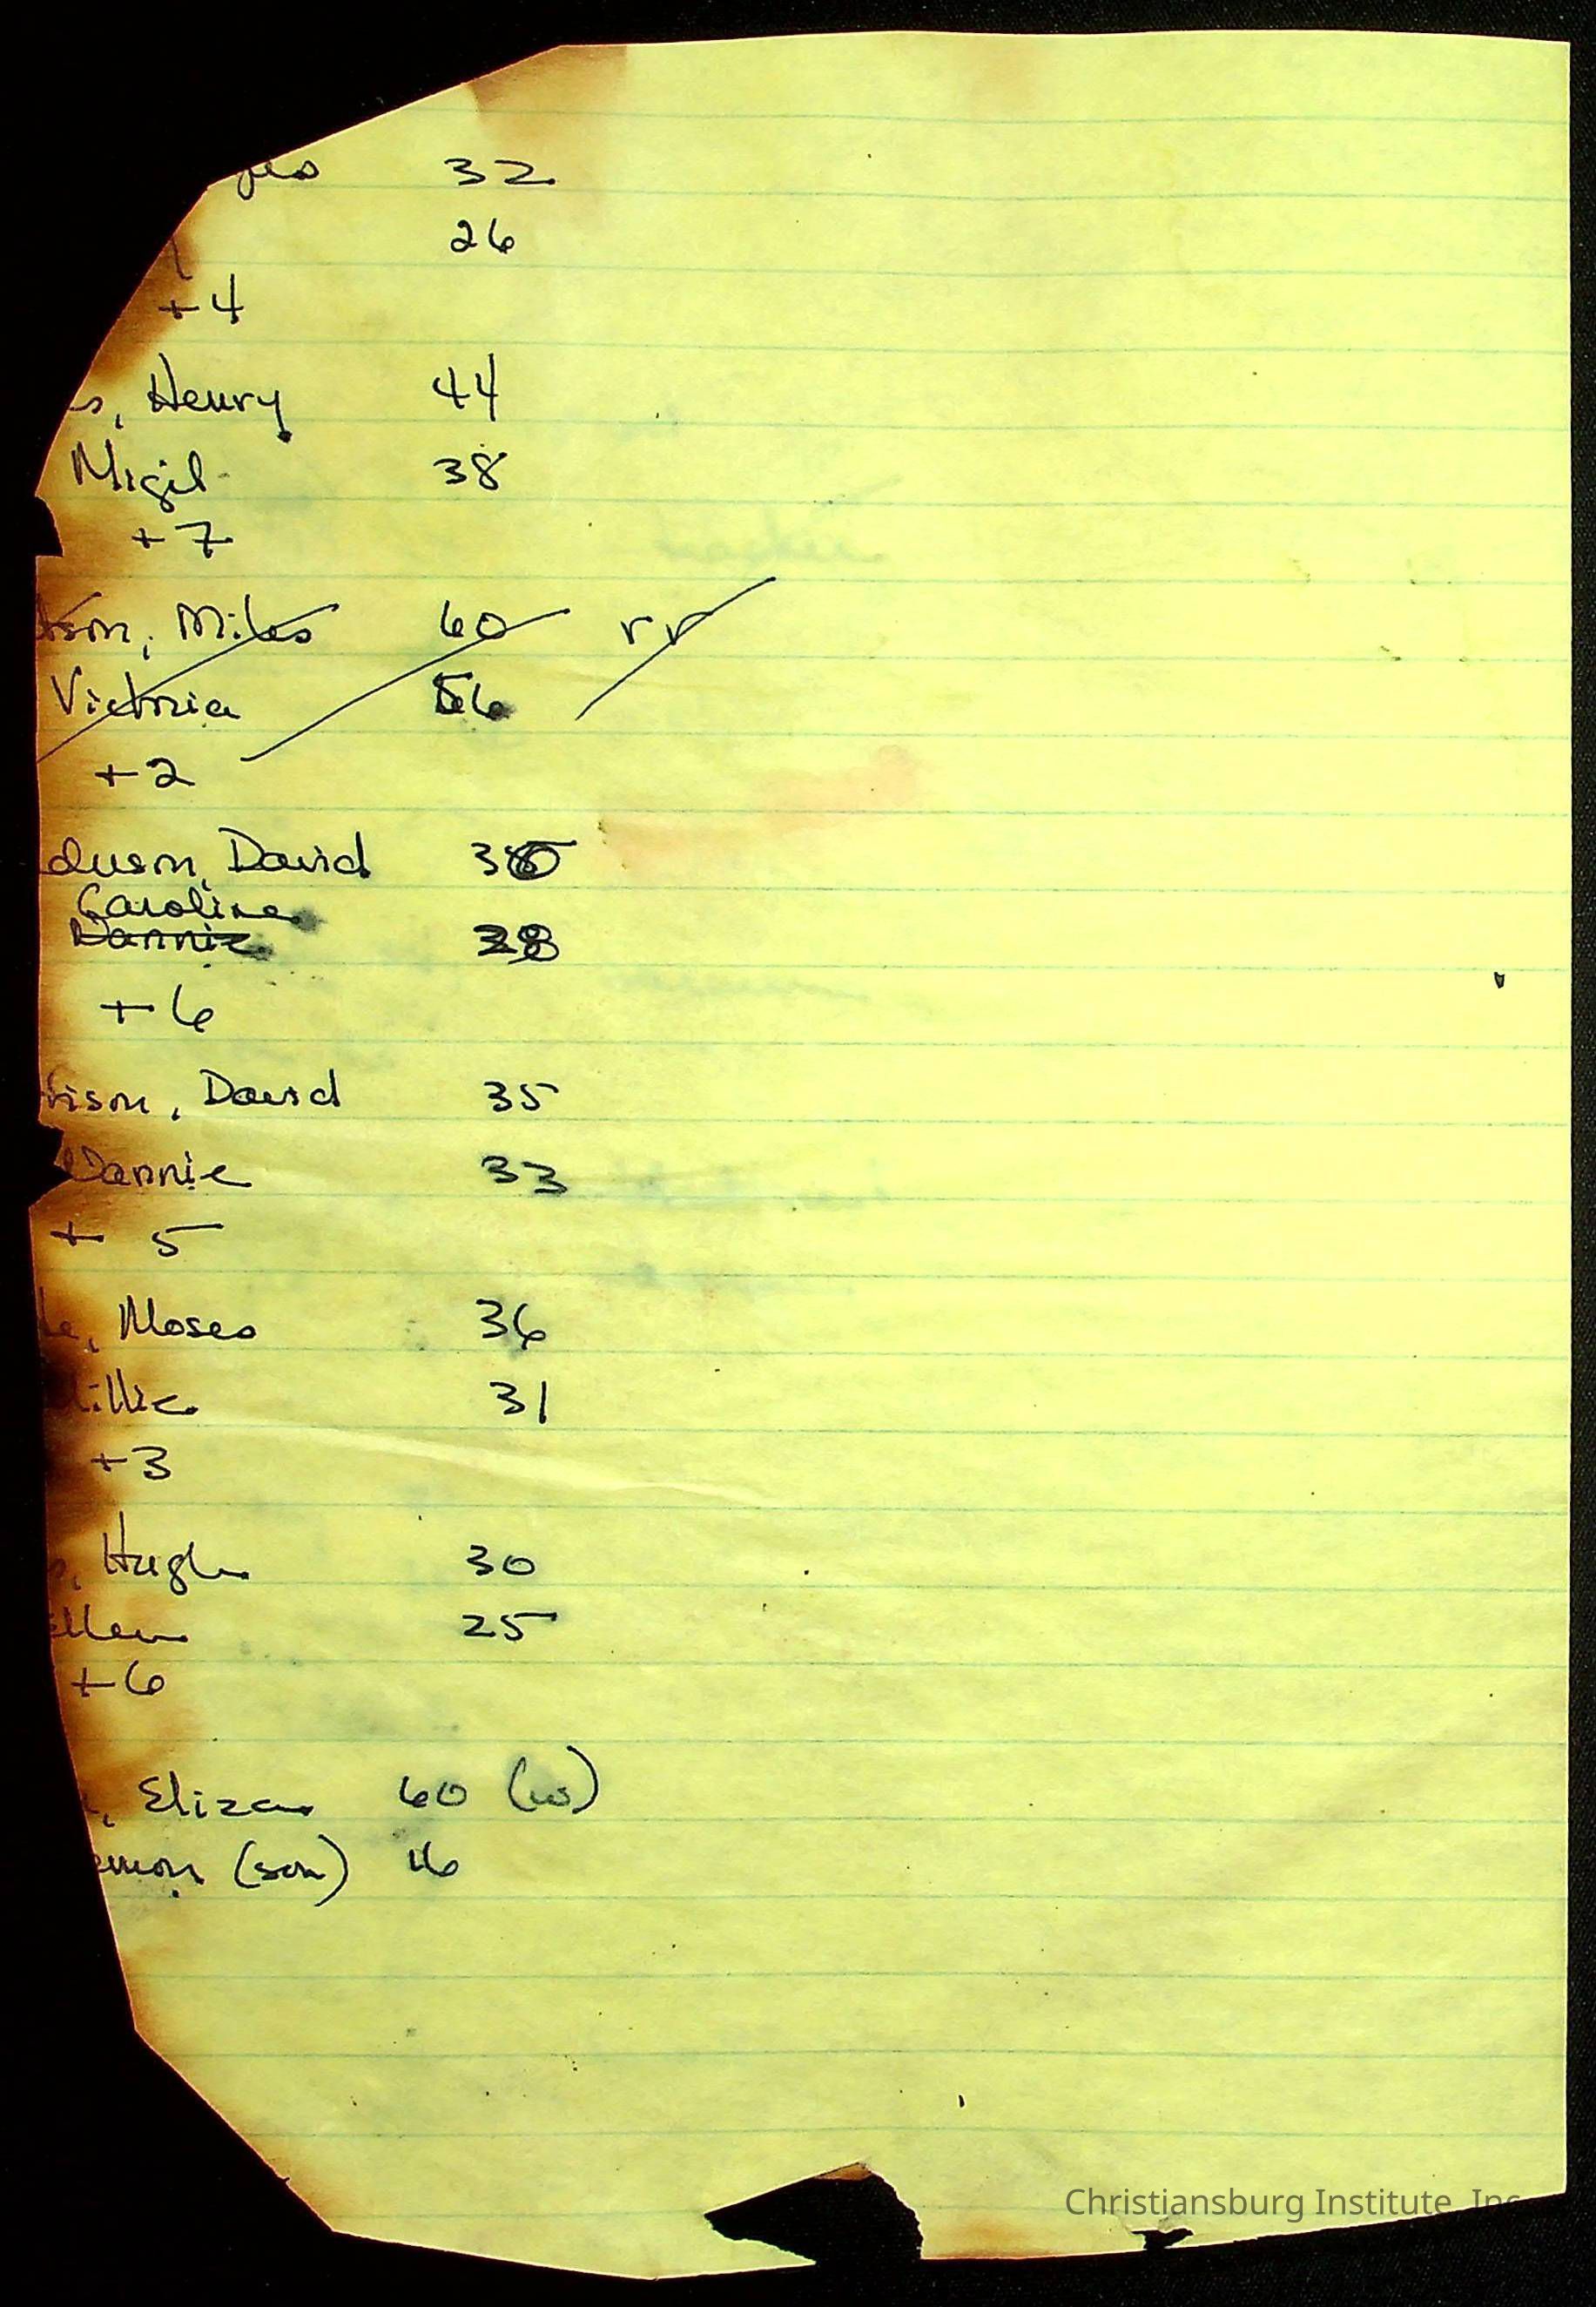 32
26
+4
, Henry 44
Migil 38
+7
son, Miles 60 rr
Victoria 56
+2
duson, David
Caroline
Dannie
+6
rison, David 35
Dannie 33
+ 5
le, Moses 36
illie 31
+3
, Hugh 30
Ellen 25
+6
, Eliza 60 (w)
emon (son) 16
Christiansburg Institute, Inc